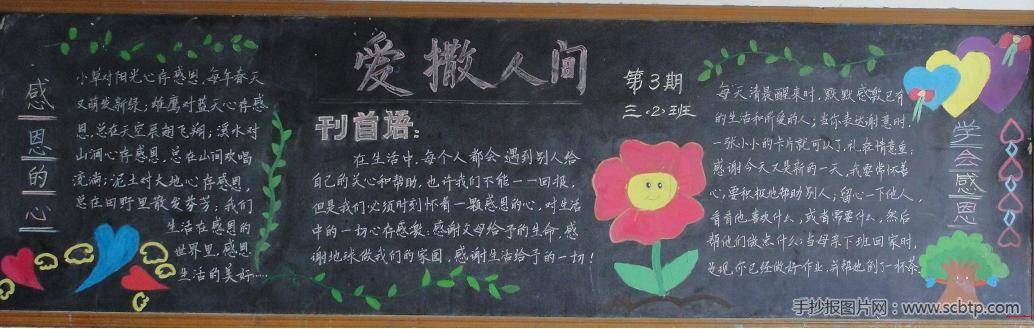 感恩的心
小草对阳光心存感恩,每年春天
又萌发新绿;雄鹰对蓝天心存感
恩,总在天空展翅飞翔;溪水对
山涧心存感恩,总在山间欢唱
流淌;泥土对大地心存感恩,
总在田野里散发芬芳;我们
生活在感恩的
世界里,感恩
生活的美好…
爱撒人间
第3期
三.2)班
刊首语:
在生活中,每个人都会遇到别人给
自己的关心和帮助,也许我们不能一一回报,
但是我们必须时刻怀着一颗感恩的心,对生活
中的一切心存感激:感谢父母给予的生命,感
谢地球做我们的家园,感谢生活给予的一切!
每天清晨醒来时,默默感激已有
的生活和所爱的人;当你表达谢意时,
一张小小的卡片就可以了,礼轻情意重;
感谢今天又是新的一天,我要常怀善
心,要积极地帮助别人;留心一下他人,
看看他喜欢什么,或者需要什么,然后
帮他们做点什么;当母亲下班回家时,
发现你已经做好作业,并帮他倒了一杯茶
学会感恩
手抄报图片网:www.scbtp.com